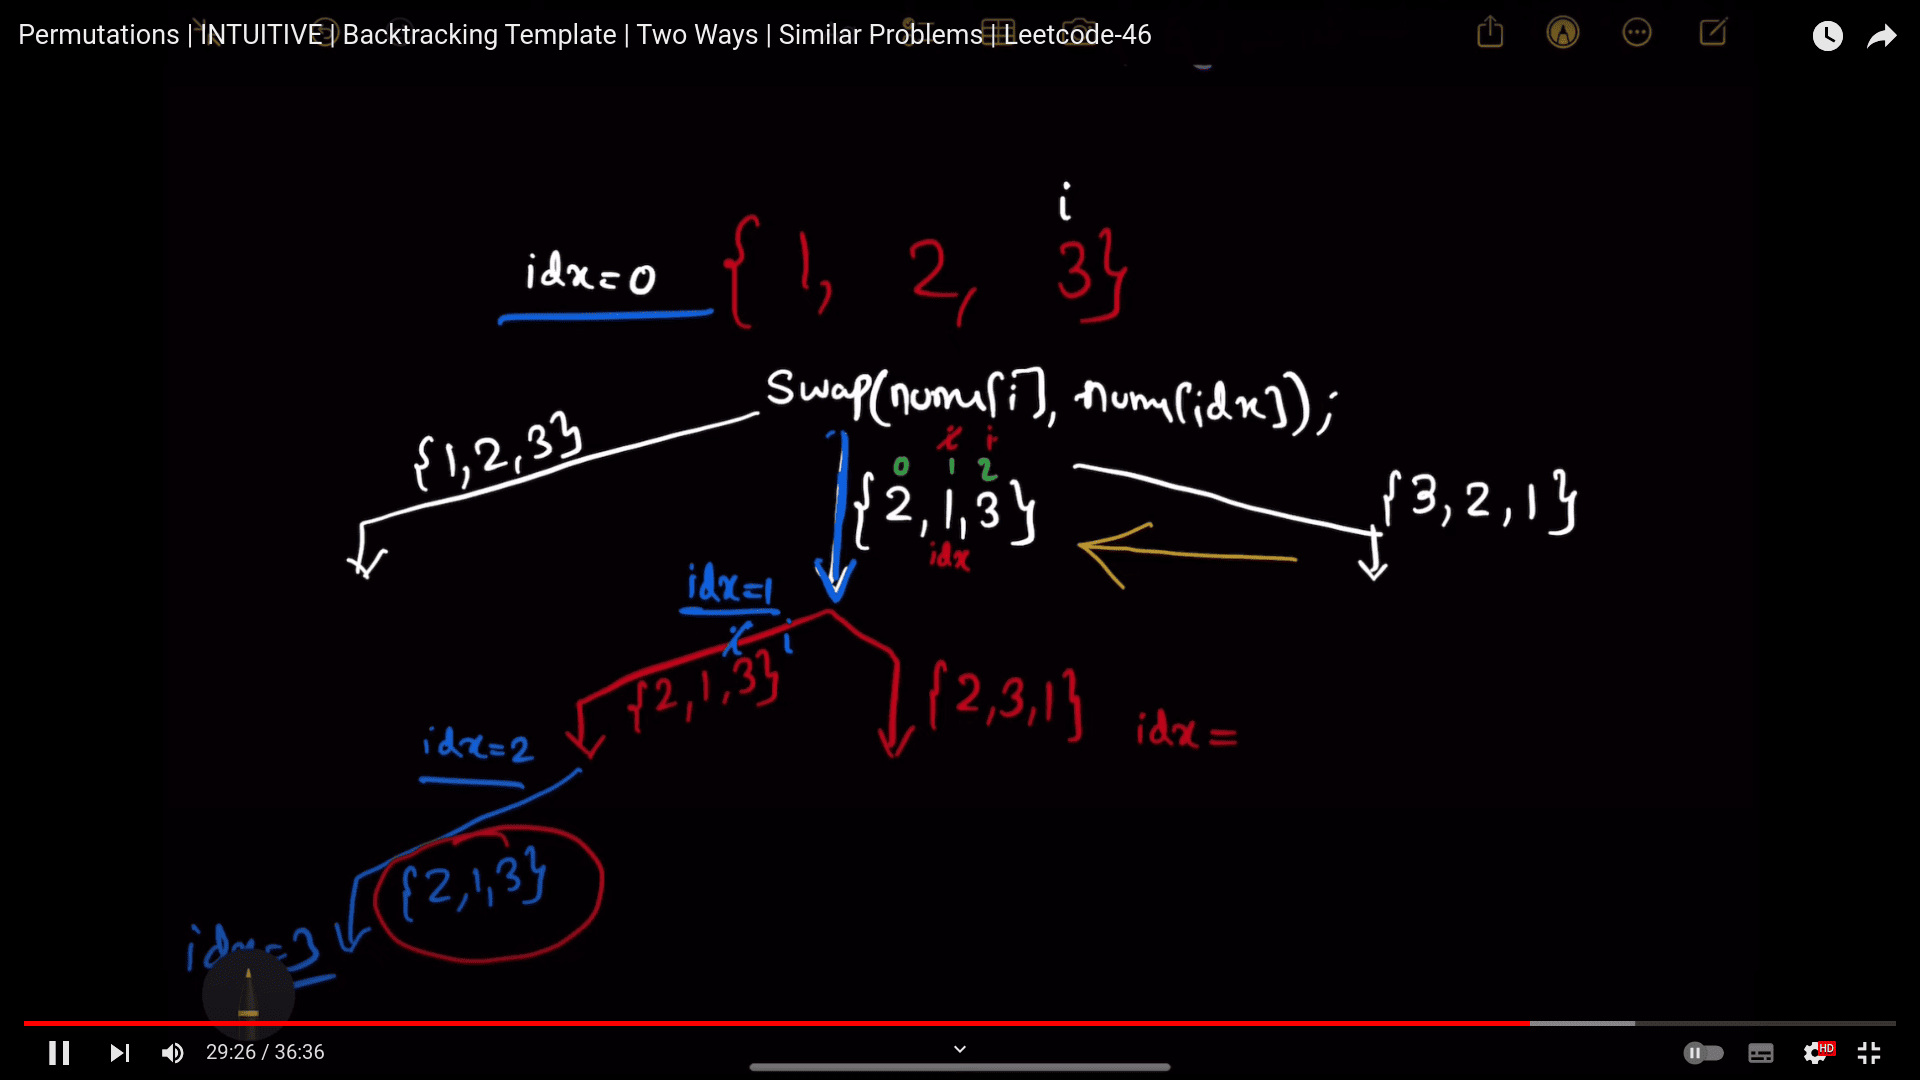 Permutations | INTUITIVE | Backtracking Template | Two Ways | Similar Problems | Leetcode-46
i
idx=0 { 1, 2, 3}
Swap(nums[i], nums[idx]);
{1,2,3}
i i
0 1 2
{2,1,3}
idx
{3,2,1}
idx=1
i i
{2,1,3}
{2,3,1} idx=
idx=2
{2,1,3}
idx=3
29:26 / 36:36
HD